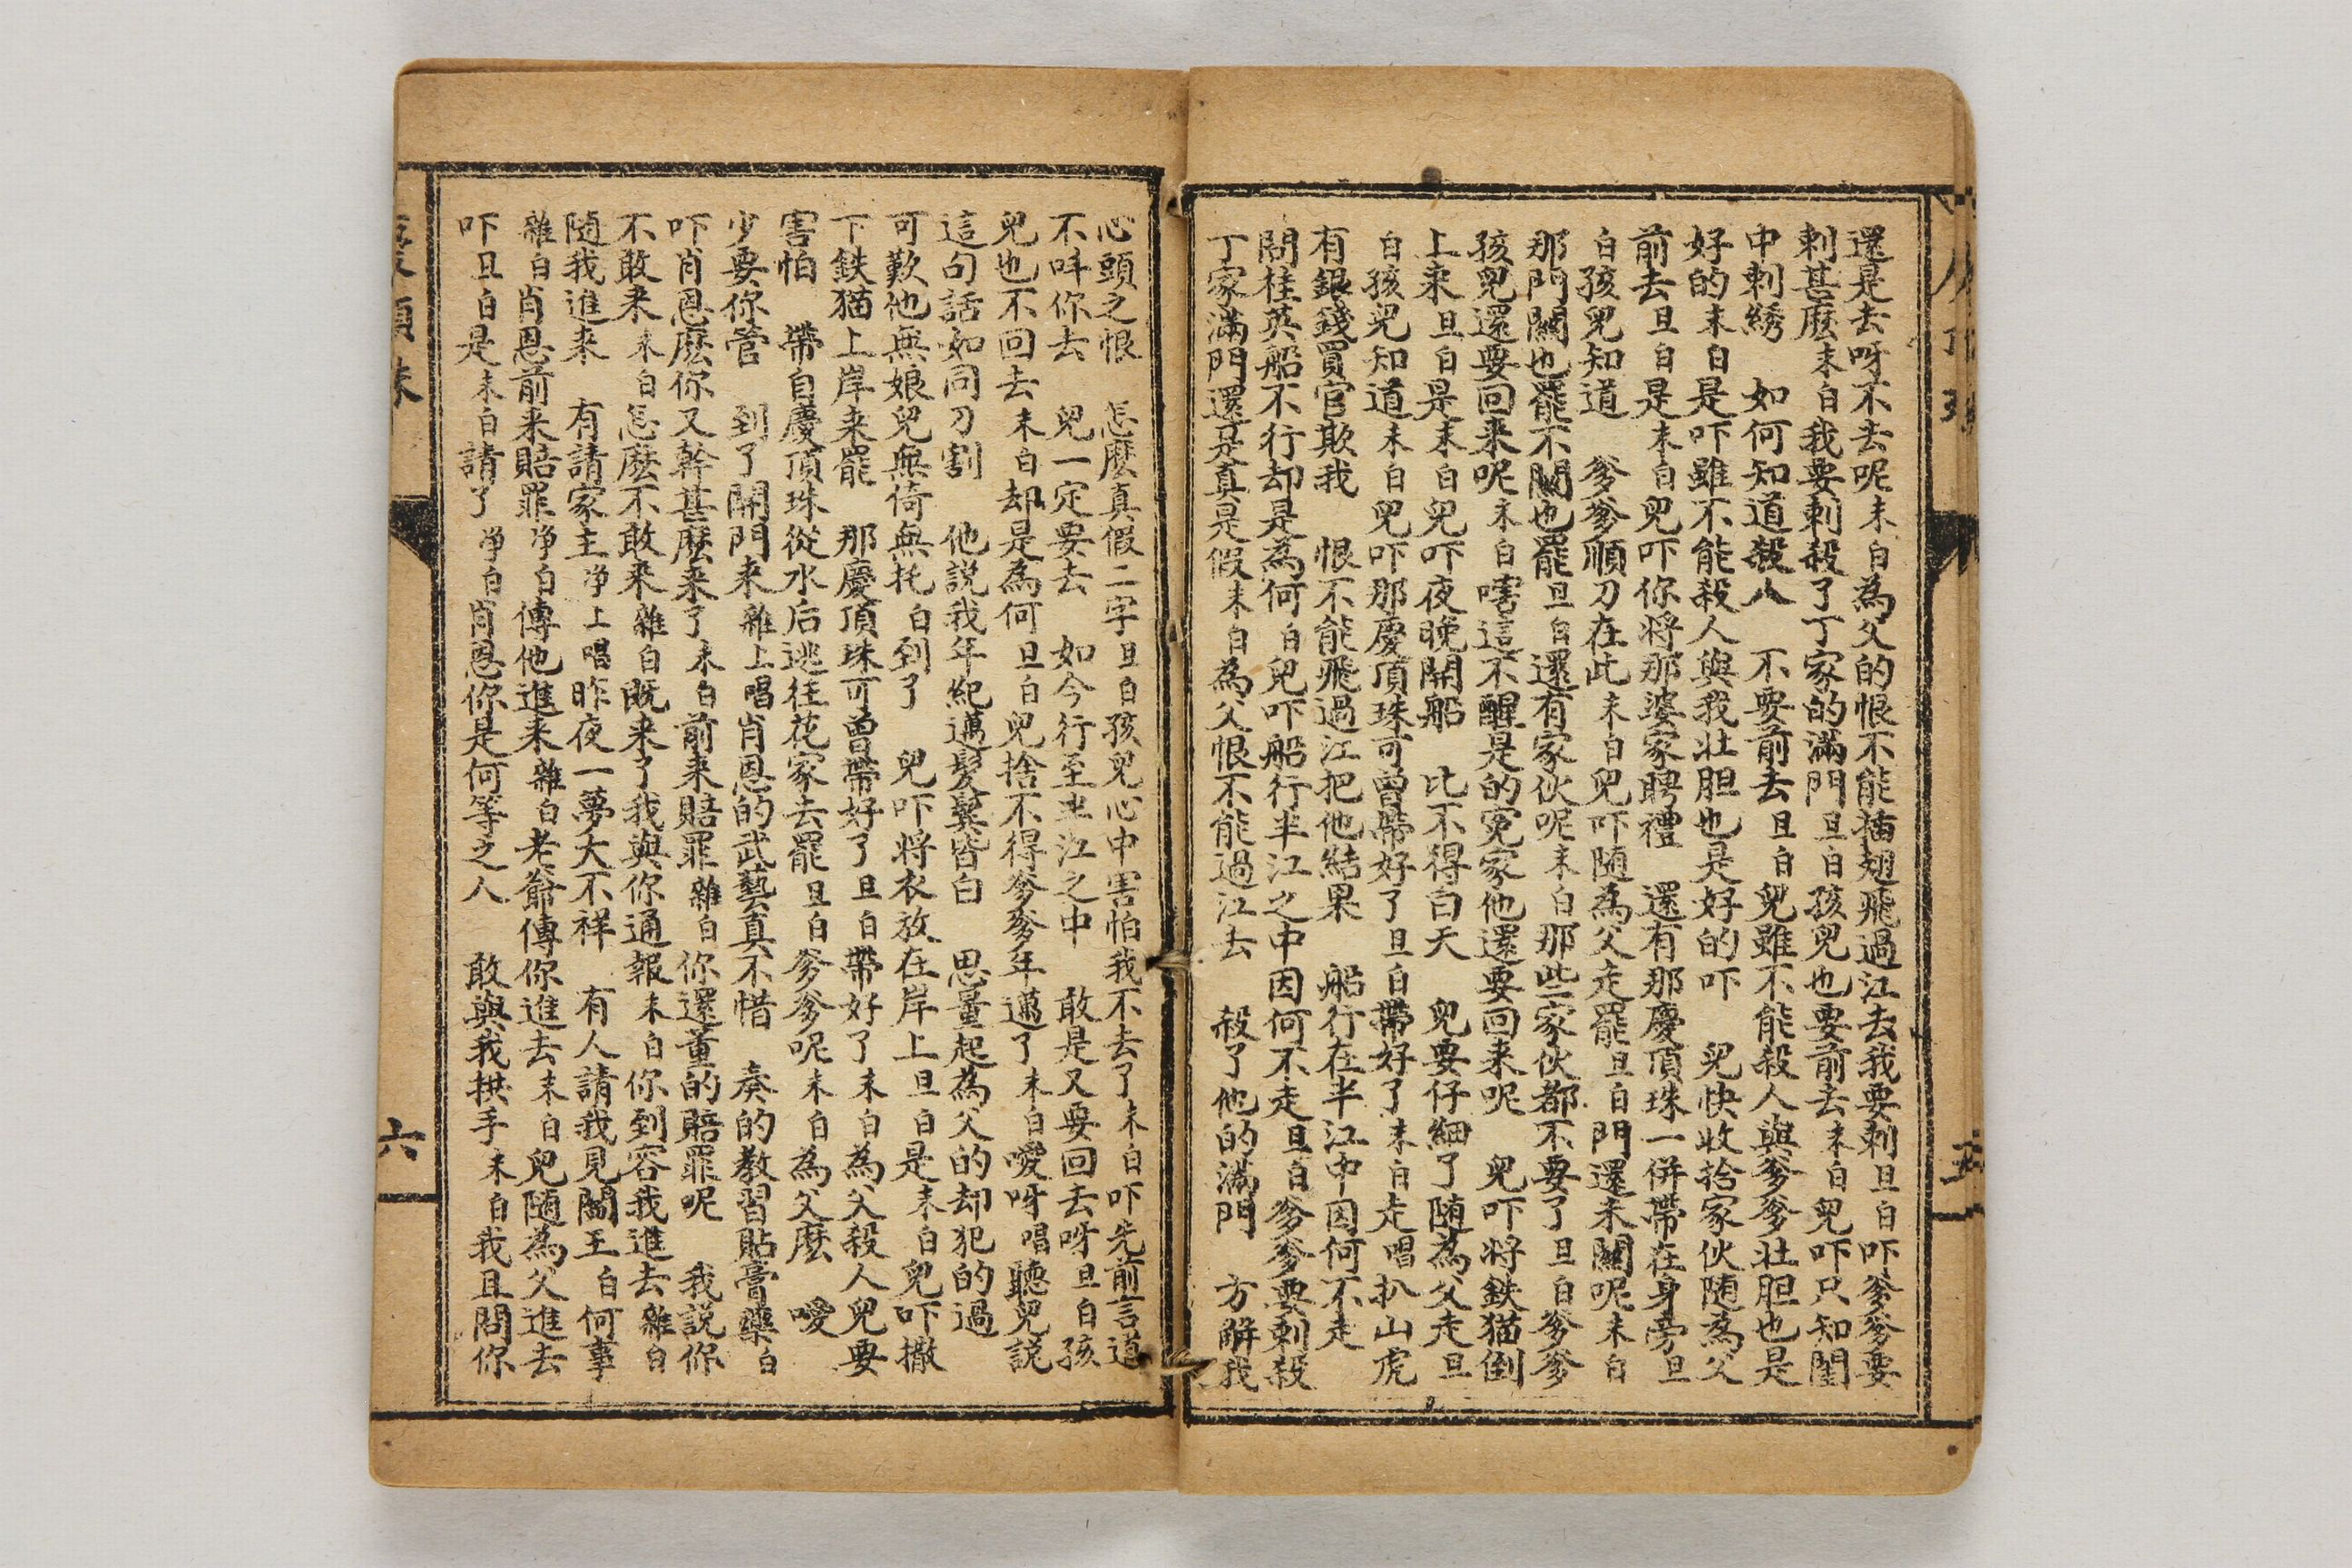 還是去呀不去呢末白為父的恨不能插翅飛過江去我要刺旦白吓爹爹要
刺甚麼末白我要刺殺了丁家的滿門旦白孩兒也要前去末白兒吓只知閨
中刺綉　如何知道殺人　不要前去旦白兒雖不能殺人與爹爹壯胆也是
好的末白是吓雖不能殺人與我壯胆也是好的吓　兒快收拾家伙随為父
前去旦白是末白兒吓你将那婆家聘禮　還有那慶頂珠一併帶在身旁旦
白孩兒知道　爹爹順刀在此末白兒吓随為父走罷旦白門還未關呢末白
那門關也罷不關也罷旦白還有家伙呢末白那些家伙都不要了旦白爹爹
孩兒還要回来呢末白嗐這不醒是的冤家他還要回来呢　兒吓将鉄猫倒
上来旦白是末白兒吓夜晚開船　比不得白天　兒要仔細了随為父走旦
白孩兒知道末白兒吓那慶頂珠可曾帶好了旦白帶好了末白走唱扒山虎
有銀錢買官欺我　恨不能飛過江把他結果　船行在半江中因何不走
問桂英船不行却是為何白兒吓船行半江之中因何不走旦白爹爹要刺殺
丁家滿門還是真是假末白為父恨不能過江去　殺了他的滿門　方解我
五
心頭之恨　怎麼真假二字旦白孩兒心中害怕我不去了末白吓先前言道
不呌你去　兒一定要去　如今行至半江之中　敢是又要回去呀旦白孩
兒也不回去末白却是為何旦白兒捨不得爹爹年邁了末白噯呀唱聽兒説
這句話如同刀割　他説我年紀邁髮鬢皆白　思量起為父的却犯的過
可歎他無娘兒無倚無托白到了　兒吓将衣放在岸上旦白是末白兒吓撒
下鉄猫上岸来罷　那慶頂珠可曾帶好了旦白帶好了末白為父殺人兒要
害怕　帶自慶頂珠從水后逃往花家去罷旦白爹爹呢末白為父麼　噯
少要你管　到了開門来雜上唱肖恩的武藝真不惜　奏的教習貼膏藥白
吓肖恩麼你又幹甚麼来了末白前来賠罪雜白你還董的賠罪呢　我説你
不敢来末白怎麼不敢来雜白既来了我與你通報末白你到容我進去雜白
随我進来　有請家主净上唱昨夜一夢大不祥　有人請我見閻王白何事
雜白肖恩前来賠罪净白傳他進来雜白老爺傳你進去末白兒随為父進去
吓旦白是末白請了净白肖恩你是何等之人　敢與我拱手末白我且問你
六